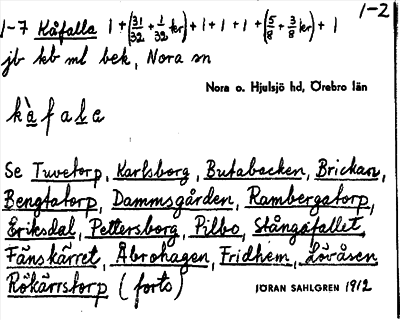 1-2
1-7 Kåfalla 1 + (31/32 + 1/32 kr) + 1 + 1 + 1 + (5/8 + 3/8 kr) + 1
jb kb ml bek, Nora sn
Nora o. Hjulsjö hd, Örebro län
kà̱fala̱
Se Tuvetorp, Karlsborg, Butabacken, Brickan,
Bengtatorp, Dammsgården, Rambergstorp,
Eriksdal, Pettersborg, Pilbo, Stångafallet,
Fänskärret, Åbrohagen, Fridhem, Lövåsen
Rökärrstorp (forts)
JÖRAN SAHLGREN 1912